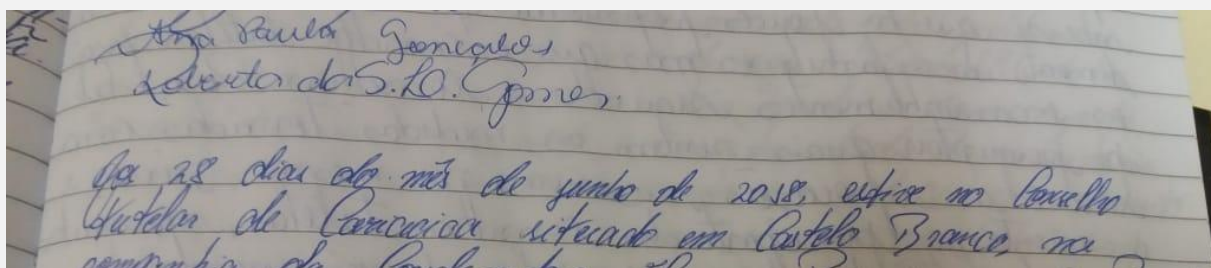 Ana Paula Gonçalves
Roberta da S. O. Gomes.
Aos 28 dias do mês de junho de 2018, estive no Conselho
Tutelar de Cariacica situado em Castelo Branco, na
companhia da